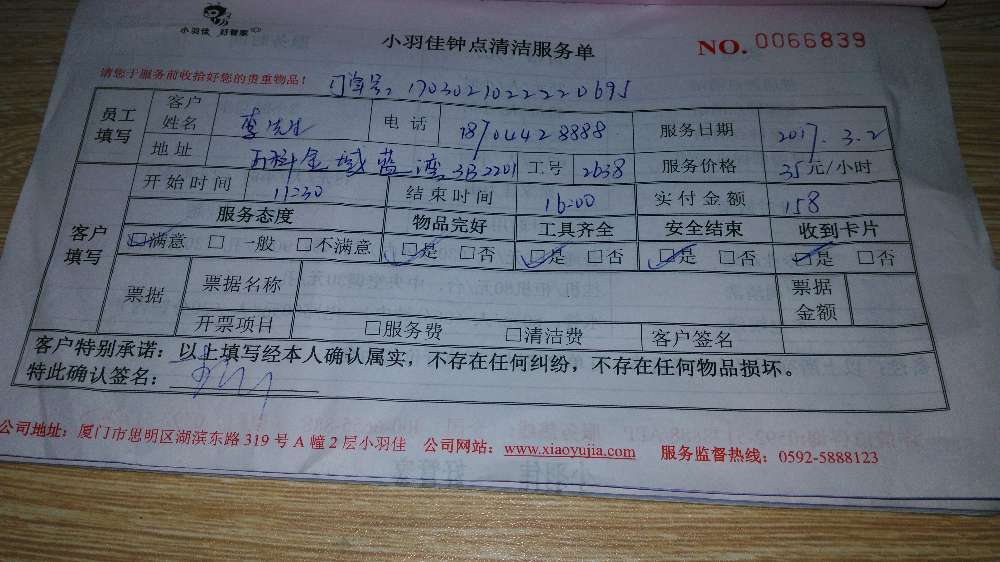 小羽佳 好管家
小羽佳钟点清洁服务单
NO. 0066839
请您于服务前收拾好您的贵重物品！
订单号：17030210222220695
员工填写 客户姓名 李先生 电话 18704428888 服务日期 2017.3.2
地址 万科金域蓝湾3B2201 工号 2638 服务价格 35元/小时
开始时间 11:30 结束时间 16:00 实付金额 158
客户填写 服务态度 物品完好 工具齐全 安全结束 收到卡片
☑满意 □一般 □不满意 ☑是 □否 ☑是 □否 ☑是 □否 ☑是 □否
票据 票据名称 票据金额
开票项目 □服务费 □清洁费 客户签名
客户特别承诺：以上填写经本人确认属实，不存在任何纠纷，不存在任何物品损坏。
特此确认签名：
公司地址：厦门市思明区湖滨东路319号A幢2层小羽佳 公司网站：www.xiaoyujia.com 服务监督热线：0592-5888123